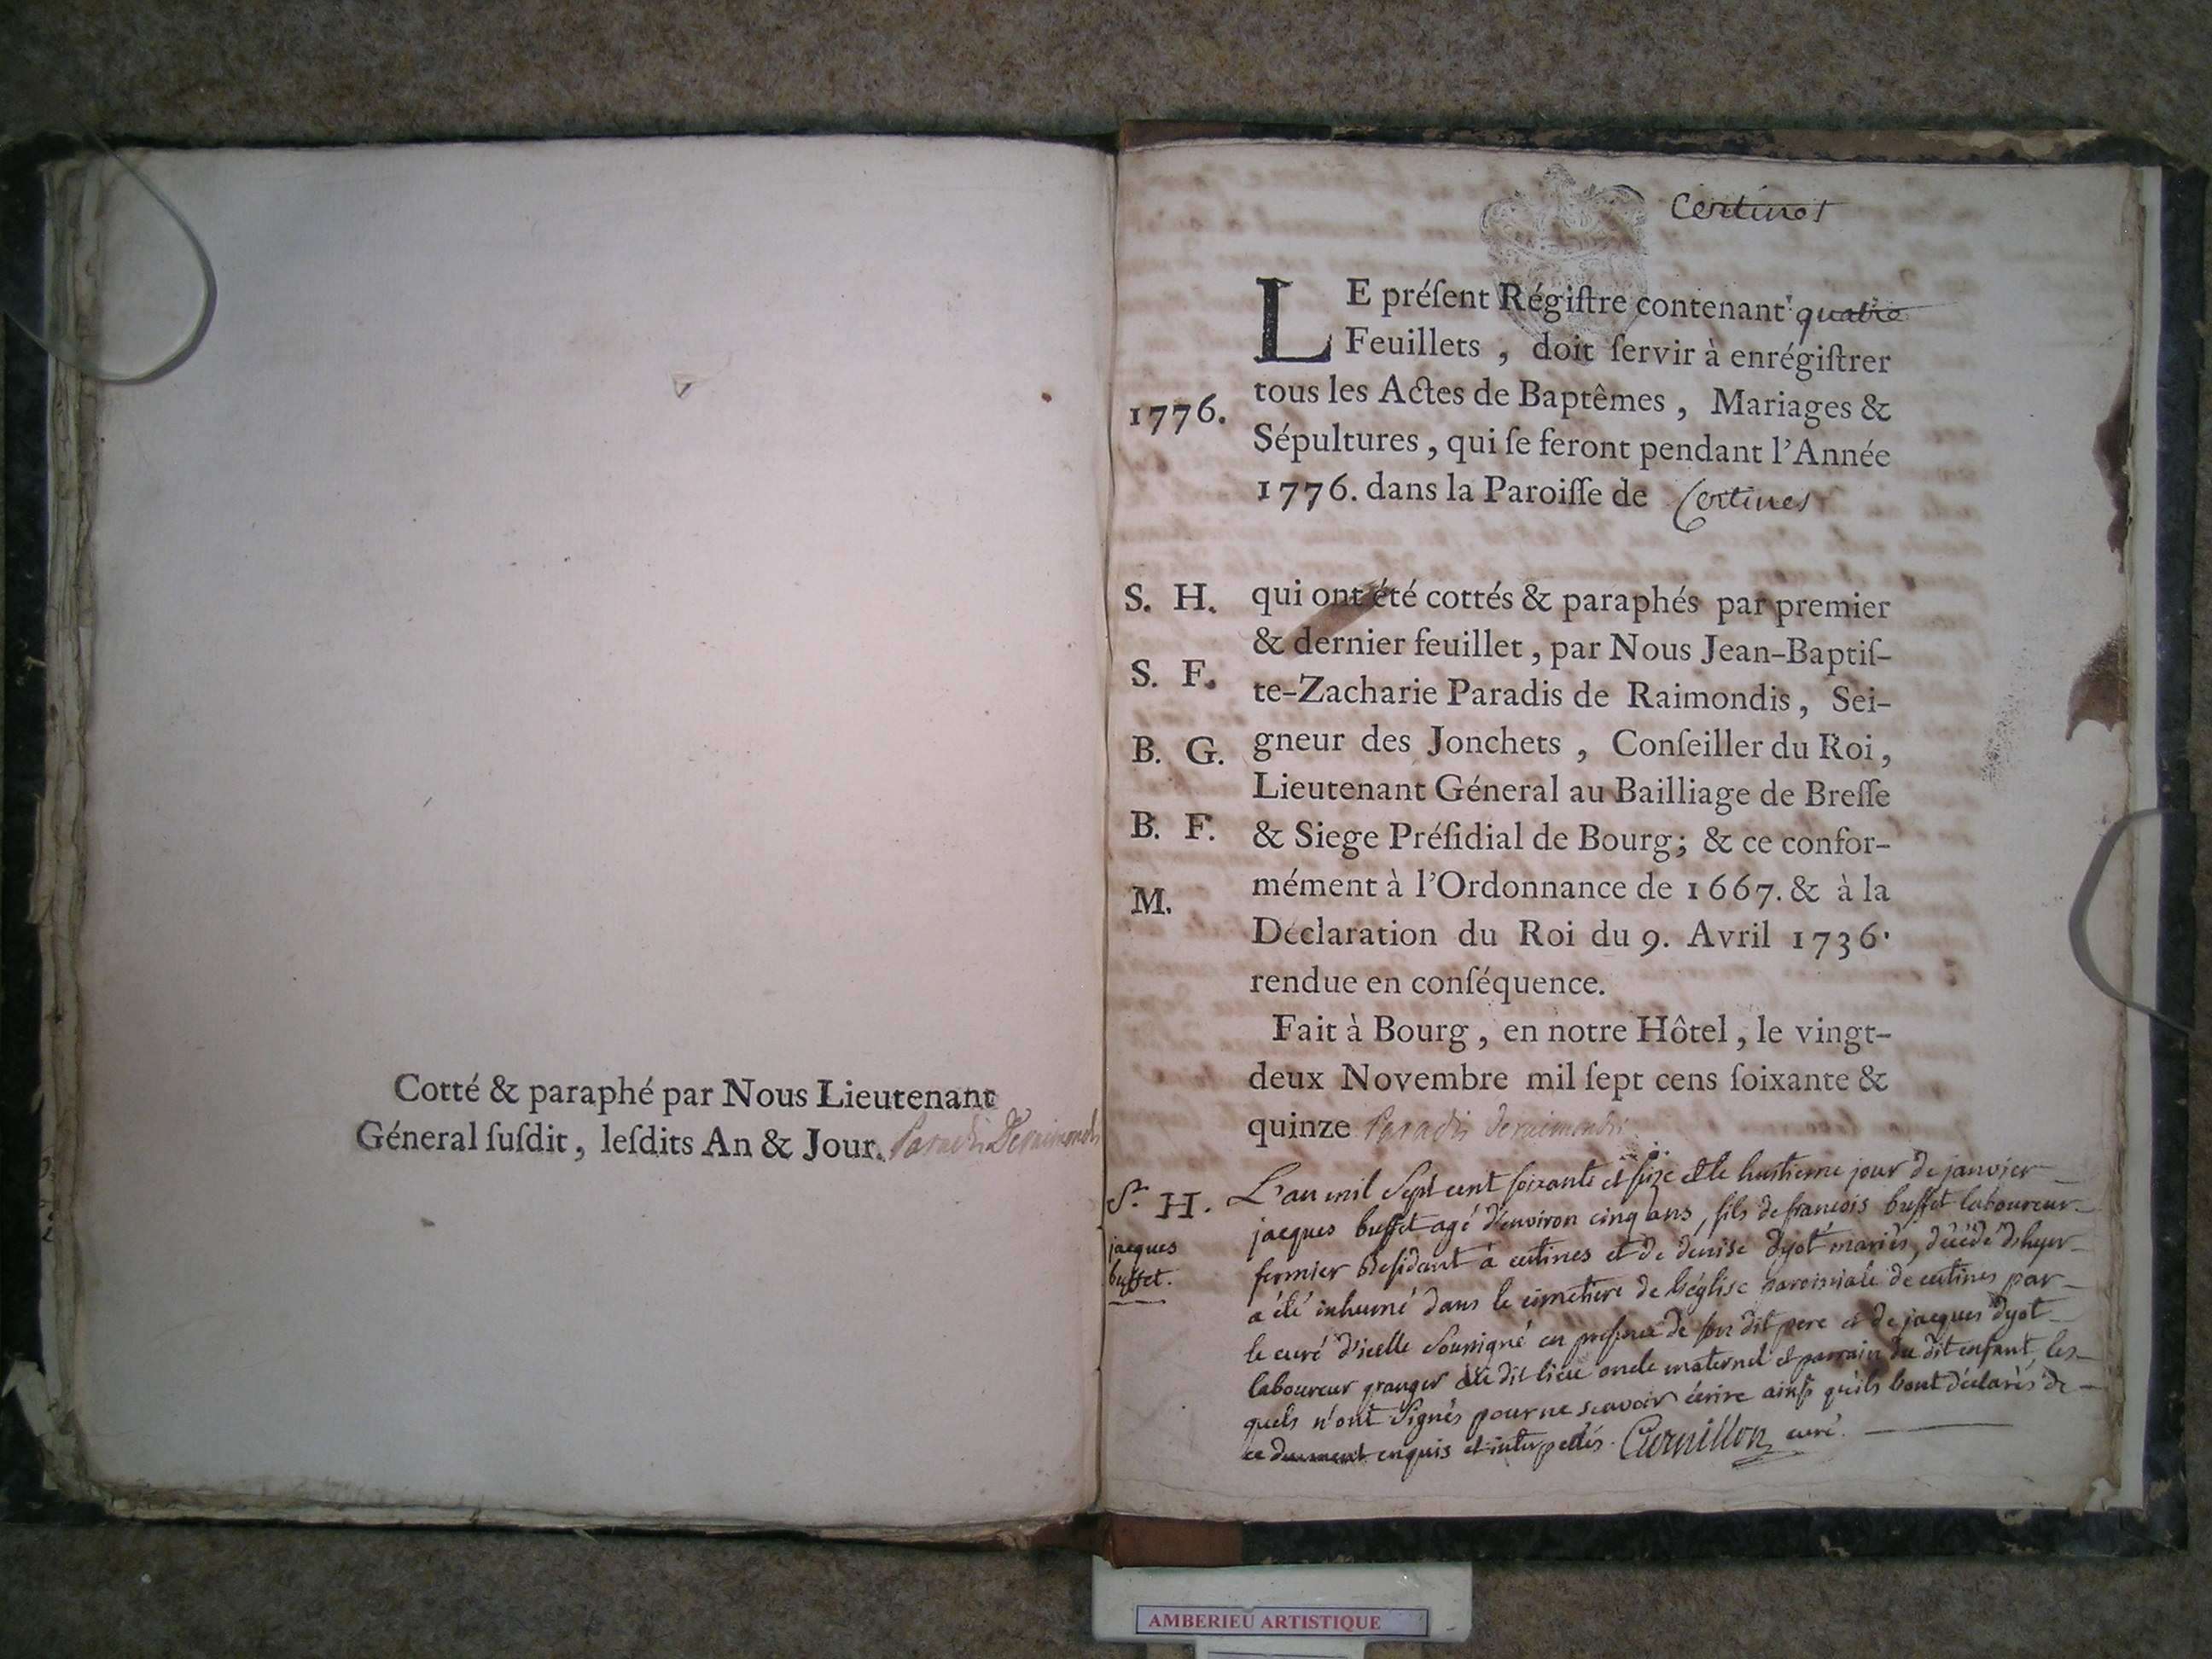 Cotté & paraphé par Nous Lieutenant
Géneral ſuſdit, leſdits An & Jour. Paradis Deraimondis
Certines
LE préſent Régiſtre contenant quatre
Feuillets, doit ſervir à enrégiſtrer
tous les Actes de Baptêmes, Mariages &
1776.
Sépultures, qui ſe feront pendant l'Année
1776. dans la Paroiſſe de Certines
S. H.
qui ont été cottés & paraphés par premier
& dernier feuillet, par Nous Jean-Baptiſ-
S. F.
te-Zacharie Paradis de Raimondis, Sei-
B. G.
gneur des Jonchets, Conſeiller du Roi,
Lieutenant Géneral au Bailliage de Breſſe
B. F.
& Siege Préſidial de Bourg; & ce confor-
mément à l'Ordonnance de 1667. & à la
M.
Déclaration du Roi du 9. Avril 1736.
rendue en conſéquence.
Fait à Bourg, en notre Hôtel, le vingt-
deux Novembre mil ſept cens ſoixante &
quinze Paradis Deraimondis
S. H.
jacques
buffet.
L'an mil Sept cent soixante et seize et le huitieme jour de janvier
jacques buffet agé d'environ cinq ans, fils de francois buffet laboureur
fermier résidant à certines et de denise dyot mariés, décédé d'hyer
a été inhumé dans le cimetiere de l'église paroissiale de certines par
le curé d'icelle Soussigné en presence de son dit pere et de jacques dyot
laboureur granger du dit lieu oncle maternel et parrain du dit enfant, les-
quels n'ont Signés pour ne scavoir écrire ainsi qu'ils l'ont déclarés de
ce duement enquis et interpellés. Cornillon curé.
AMBERIEU ARTISTIQUE